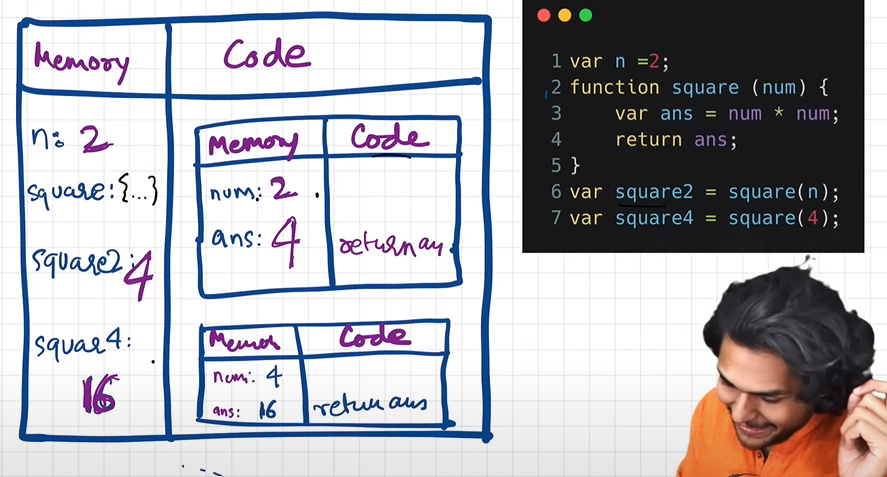 Memory
Code
n: 2
square:{...}
square2: 4
squar4:
16
Memory
Code
num: 2
ans: 4
return an
Memor
Code
num: 4
ans: 16
return ans
1 var n =2;
2 function square (num) {
3 var ans = num * num;
4 return ans;
5 }
6 var square2 = square(n);
7 var square4 = square(4);